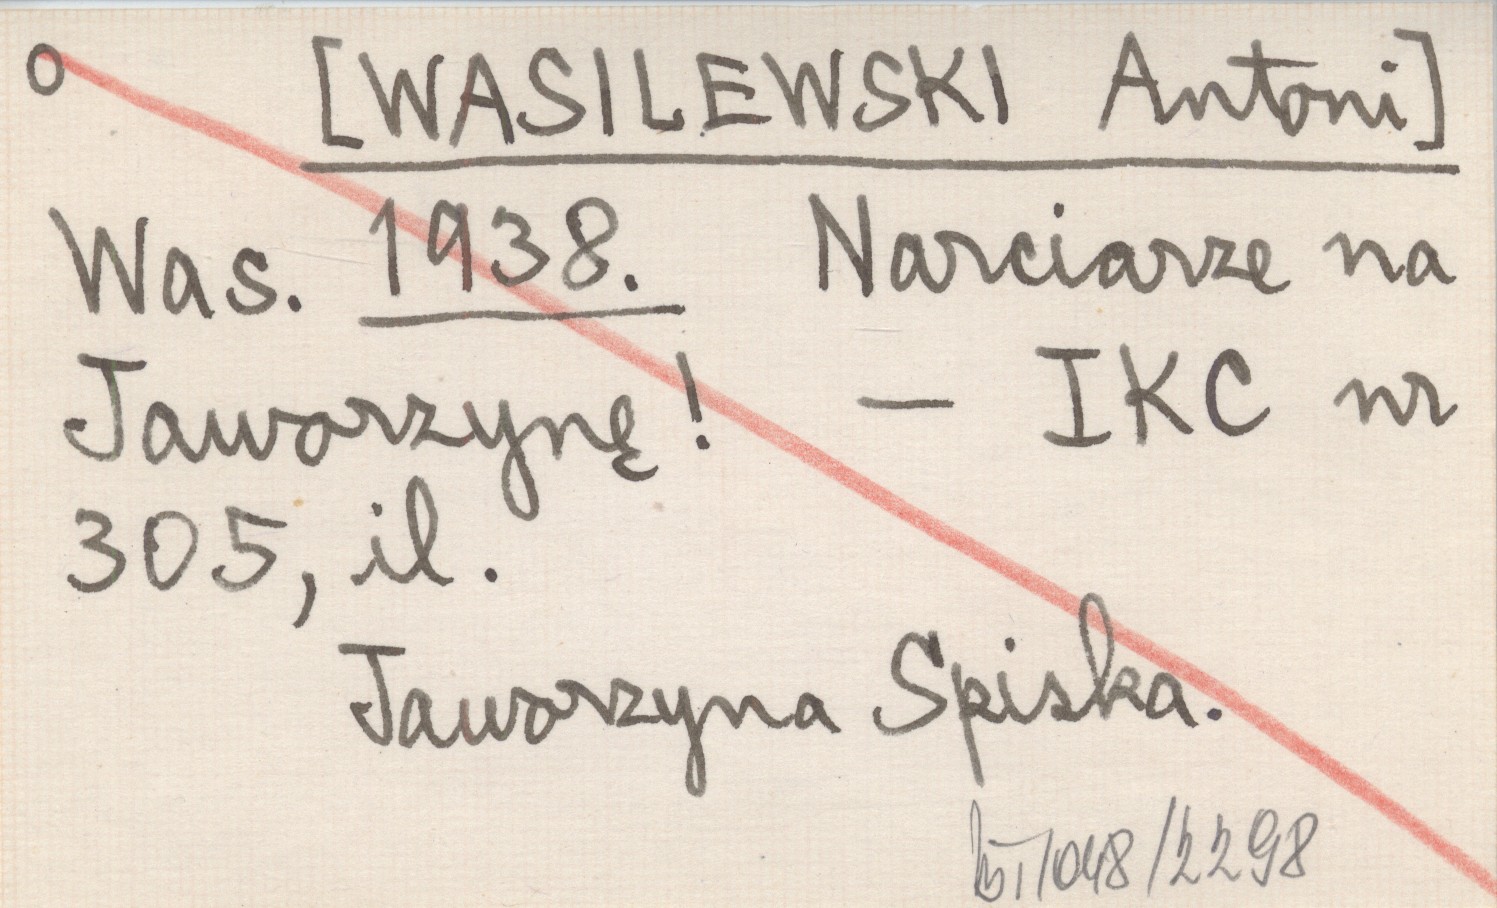 o [WASILEWSKI Antoni]
Was. 1938. Narciarze na
Jaworzynę! — IKC nr
305, il.
Jaworzyna Spiska.
/048/2298